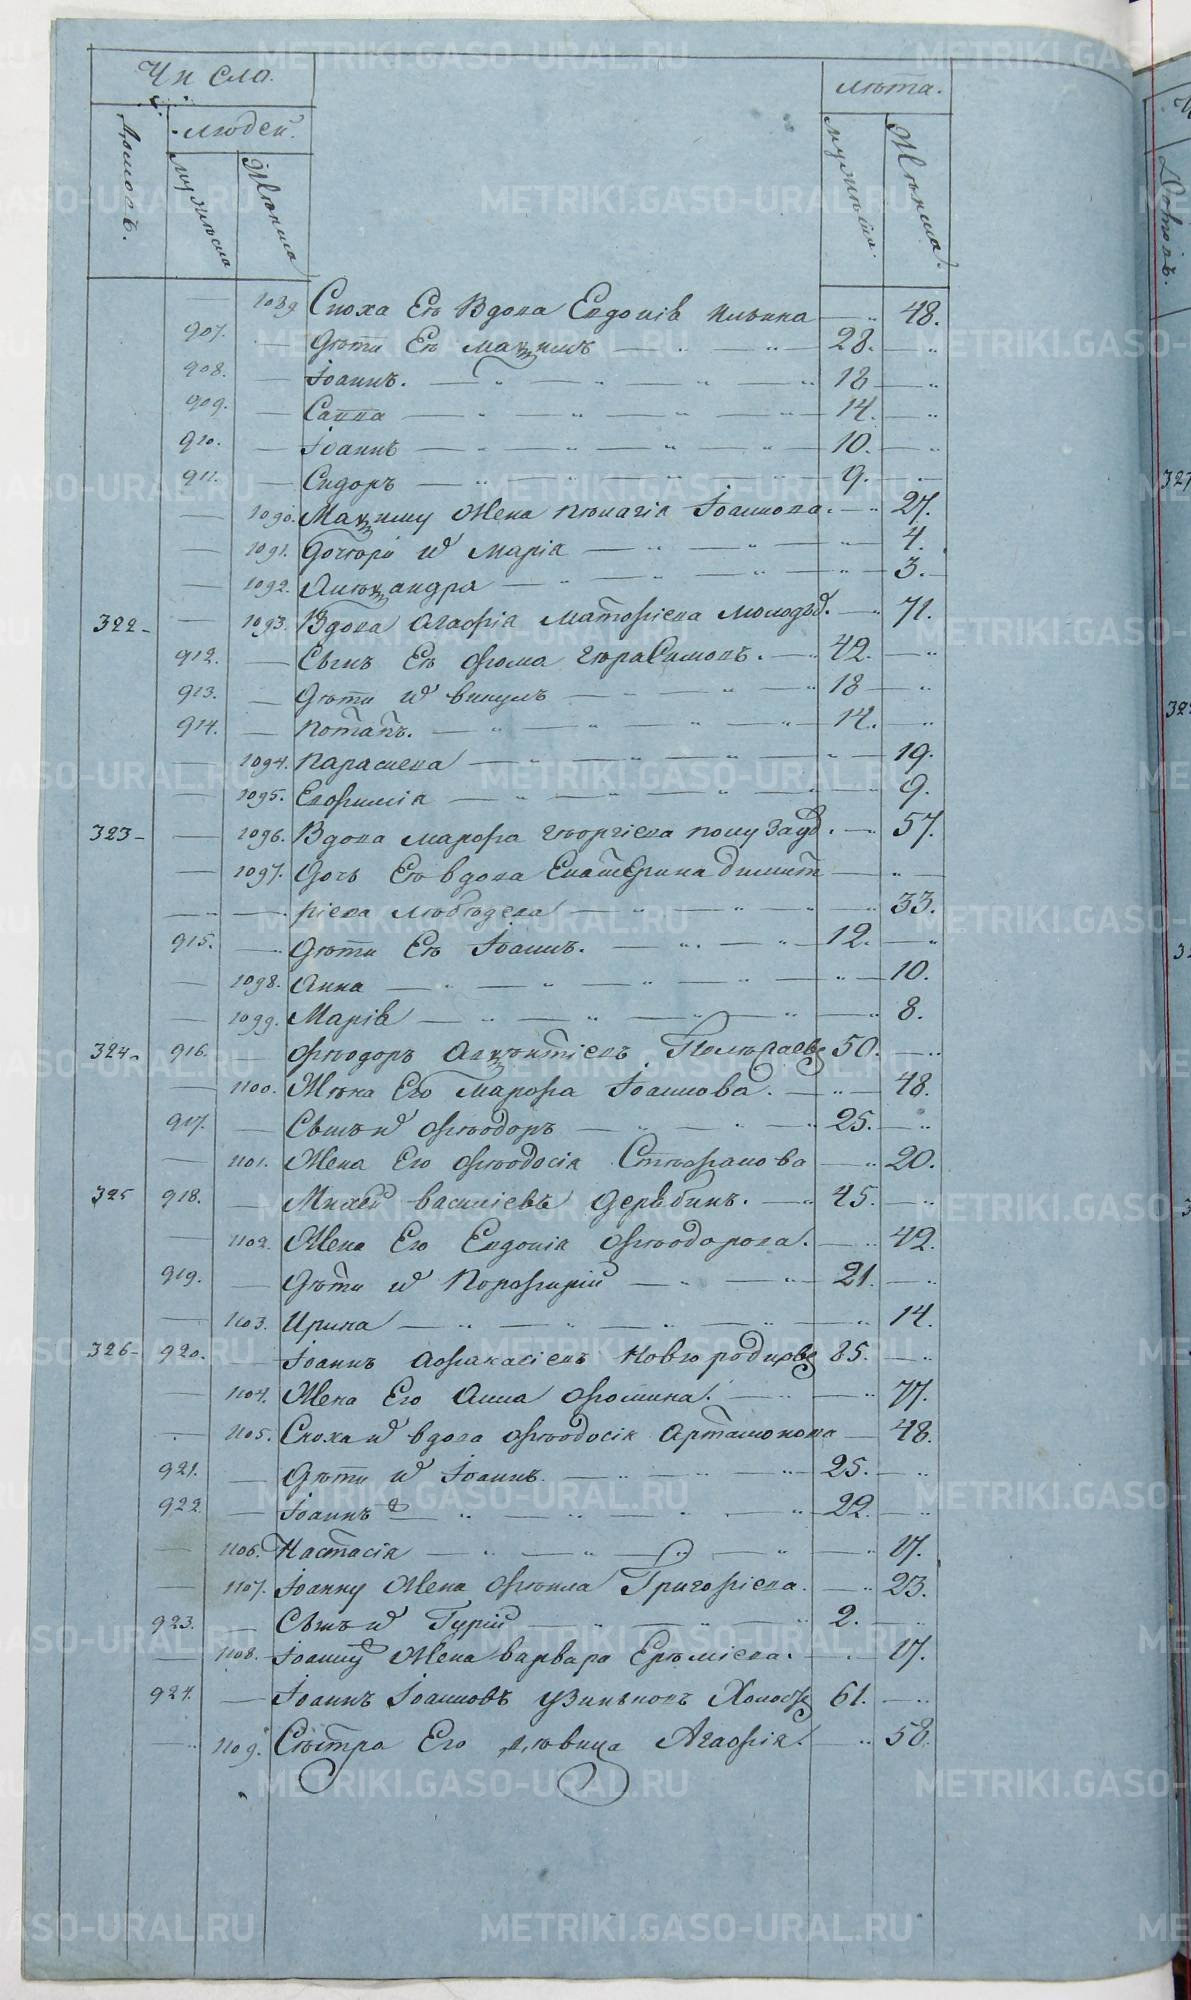 Число.
лѣта.
Домовъ.
людей.
мужеска
Женска
мужескаго.
Женска.
1089 Сноха Ея Вдова Евдокія Ильина — 48.
907. — Дѣти Ея Маѯимъ — 28.
908. — Іоаннъ. — 18
909. — Савва — 14.
910. — Іоаннъ — 10.
911. — Сидоръ — 9.
— 1090. Маѯиму Жена Пелагія Іоаннова. — 27.
— 1091. Дочери и҃ Марія — 4.
— 1092. Алеѯандра — 3.
322 — 1093. Вдова Агафія Матфіева — 71.
912. — Сынъ Ея Фома Герасимовъ. — 42.
913. — Дѣти и҃ Викулъ — 18
914. — Потапъ. — 14.
— 1094. Параскева — 19.
— 1095. Евфимія — 9.
323 — 1096. Вдова Марфа Георгіева — 57.
— 1097. Дочь Ея вдова Екатерина Димит
ріева — 33.
915. — Дѣти Ея Іоаннъ. — 12.
— 1098. Анна — 10.
— 1099. Марія — 8.
324 916. — Феодоръ — 50.
— 1100. Жена Его Марфа Іоаннова. — 48.
917. — Сынъ и҃ Феодоръ — 25.
— 1101. Жена Его Феодосія Стефанова — 20.
325 918. — Михей Василіевъ Дерябинъ. — 45.
— 1102. Жена Его Евдокія Феодорова. — 42.
919. — Дѣти и҃ Порфирій — 21.
— 1103. Ирина — 14.
326 920. — Іоаннъ Афанасіевъ Новгородцовъ 85.
— 1104. Жена Его Анна Фомина. — 77.
— 1105. Сноха и҃ вдова Феодосія Артамонова — 48.
921. — Дѣти и҃ Іоаннъ — 25.
922. — Іоаннъ — 22.
— 1106. Настасія — 17.
— 1107. Іоанну Жена Фекла Григоріева. — 23.
923. — Сынъ и҃ Гурій — 2.
— 1108. Іоанну Жена Варвара Ереміева. — 17.
924. — Іоаннъ Іоанновъ Узиньковъ Холостъ 61.
— 1109. Сестра Его дѣвица Агафія. — 58.
METRIKI.GASO-URAL.RU